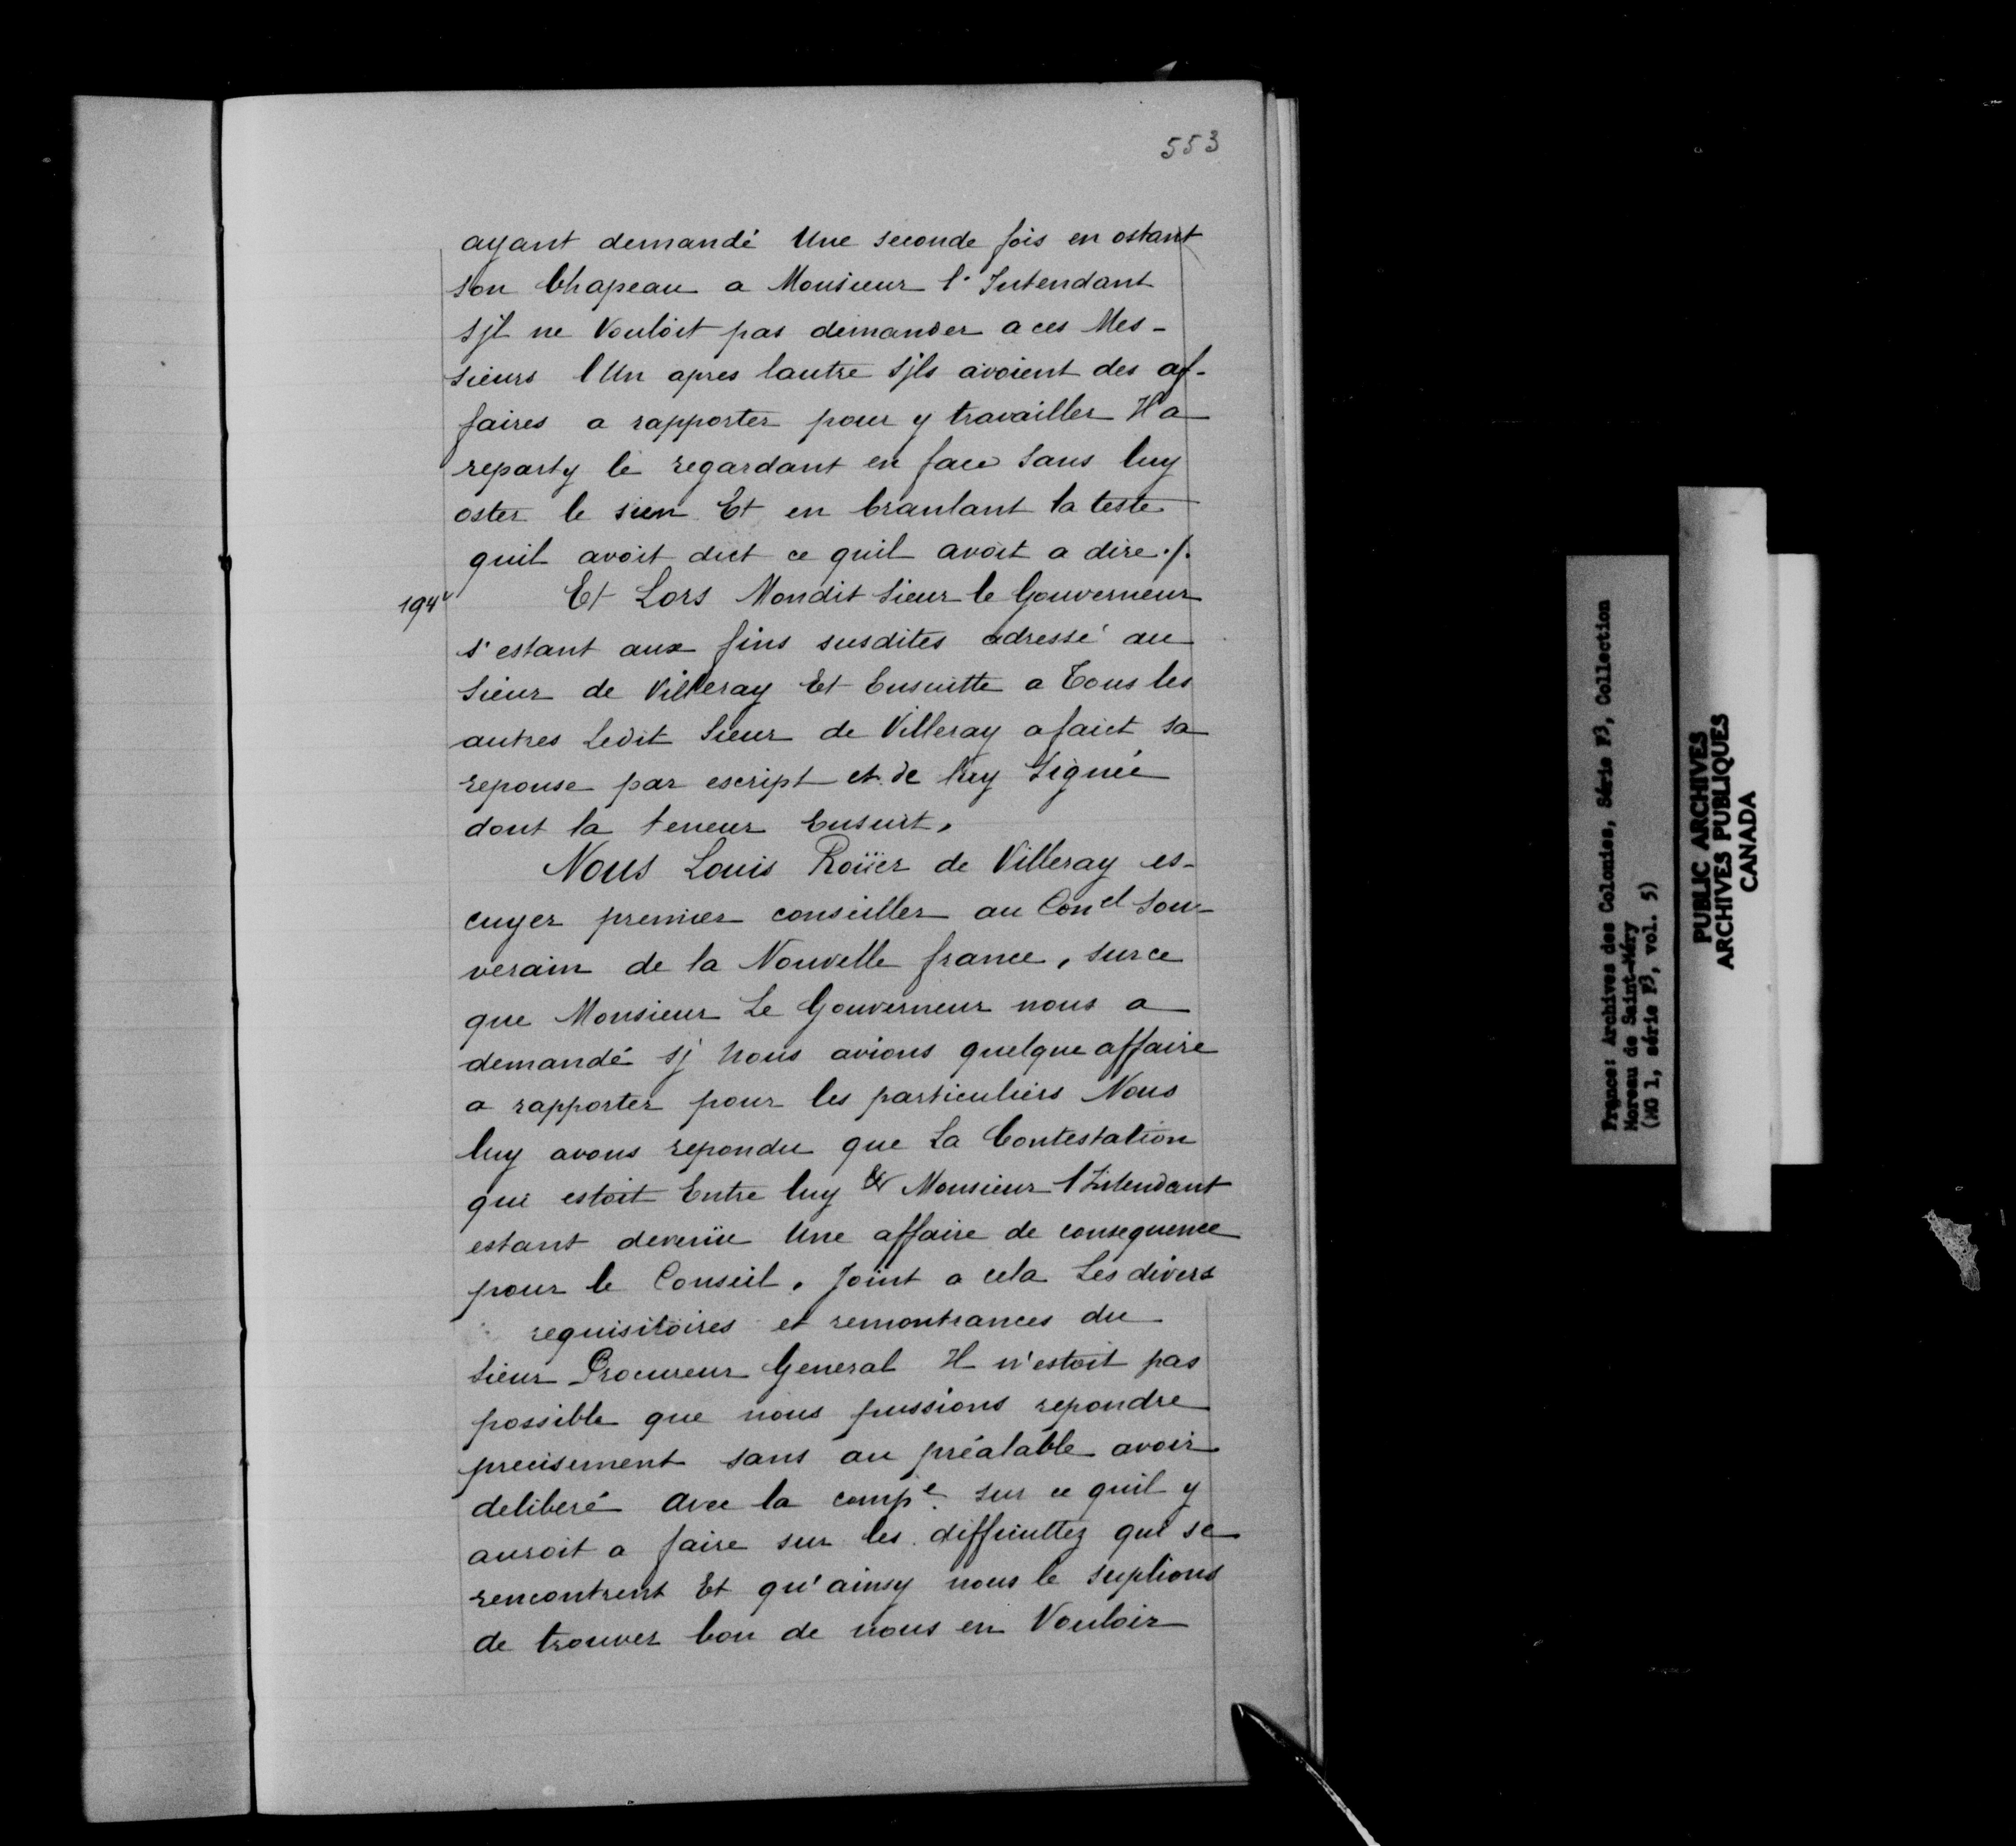 553
ayant demandé Une seconde fois en ostant
son Chapeau a Monsieur l'Intendant
sjl ne Vouloit pas demander a ces Mes-
sieurs l Un apres lautre sjls avoient des af-
faires a rapporter pour y travailler Il a
reparty le regardant en face sans luy
oster le sien Et en branlant la teste
quil avoit dict ce quil avoit a dire ./.
194v Et Lors Mondit Sieur le Gouverneur
s'estant aux fins susdites adressé au
Sieur de Villeray Et Ensuitte a Tous les
autres Ledit Sieur de Villeray a faict sa
reponse par escript et de luy Signée
dont la teneur Ensuit,
Nous Louis Roüer de Villeray es-
cuyer premier conseiller au Conel Sou-
verain de la Nouvelle france, sur ce
que Monsieur Le Gouverneur nous a
demandé sj nous avions quelque affaire
a rapporter pour les particuliers Nous
luy avons repondu que La Contestation
qui estoit Entre luy & Monsieur l'Intendant
estant devenüe Une affaire de consequence
pour le Conseil, Joint a cela Les divers
requisitoires et remontrances du
Sieur Procureur General Il n'estoit pas
possible que nous pussions repondre
precisement sans au préalable avoir
deliberé avec la compe. sur ce quil y
auroit a faire sur les difficultez qui se
rencontrent Et qu'ainsy nous le suplions
de trouver bon de nous en Vouloir
France: Archives des Colonies, Série F3, Collection
Moreau de Saint-Méry
(MG 1, série F3, vol. 5)
PUBLIC ARCHIVES
ARCHIVES PUBLIQUES
CANADA